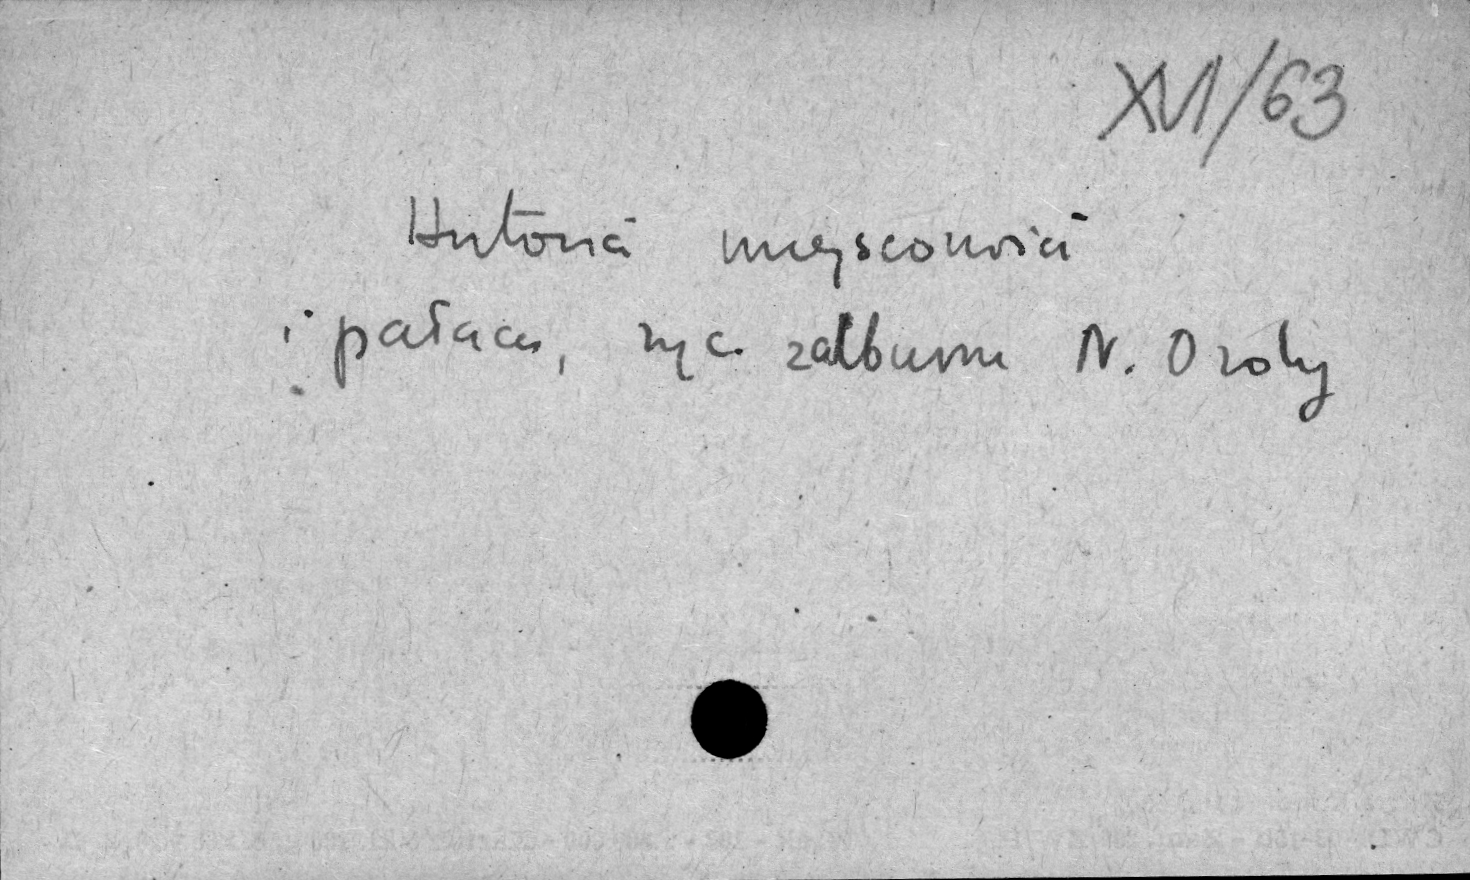 XVI/63
Historia miejscowości
i pałacu, ryc. z albumu N. Ordy